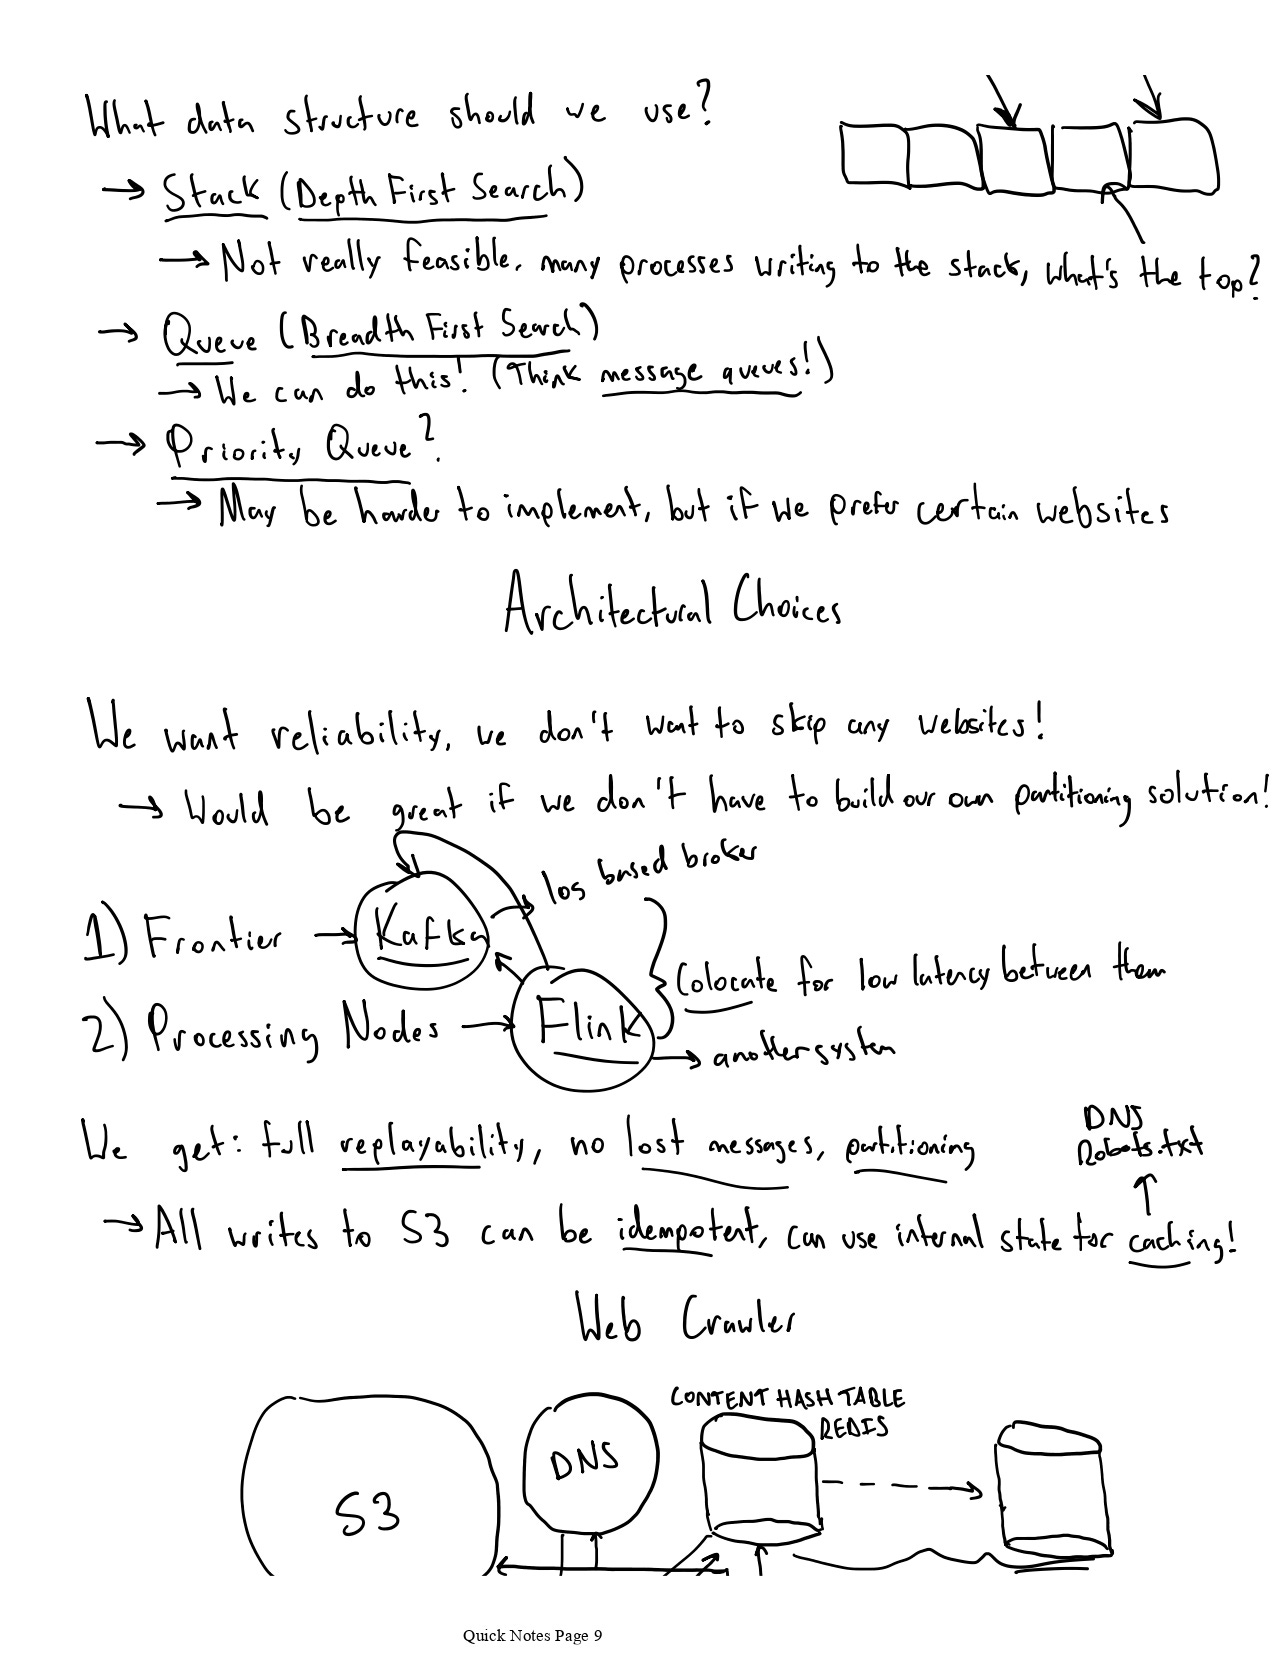 What data structure should we use?
→ Stack (Depth First Search)
→ Not really feasible, many processes writing to the stack, what's the top?
→ Queue (Breadth First Search)
→ We can do this! (Think message queues!)
→ Priority Queue?
→ May be harder to implement, but if we prefer certain websites
Architectural Choices
We want reliability, we don't want to skip any websites!
→ Would be great if we don't have to build our own partitioning solution!
log based broker
1) Frontier → Kafka
Colocate for low latency between them
2) Processing Nodes → Flink
→ another system
We get: full replayability, no lost messages, partitioning
DNS
Robots.txt
→ All writes to S3 can be idempotent, can use internal state for caching!
Web Crawler
CONTENT HASH TABLE
REDIS
DNS
S3
Quick Notes Page 9